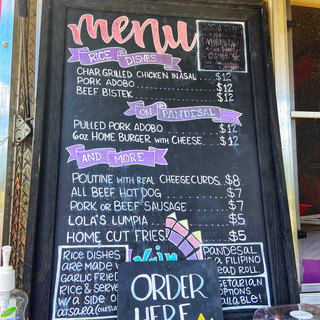 menu
RICE DISHES
CHAR GRILLED CHICKEN INASAL ..... $12
PORK ADOBO ..... $12
BEEF BISTEK ..... $12
ON PANDESAL
PULLED PORK ADOBO ..... $12
6oz HOME BURGER WITH CHEESE .... $12
AND MORE
POUTINE WITH REAL CHEESE CURDS. $8
ALL BEEF HOT DOG ..... $7
PORK OR BEEF SAUSAGE ..... $7
LOLA'S LUMPIA ..... $5
HOME CUT FRIES ..... $5
RICE DISHES
ARE MADE
GARLIC FRIED
RICE & SERVE
W/ A SIDE O
ATSARA
PANDESAL
A FILIPINO
EAD ROLL.
GETARIAN
OPTIONS
AILABLE!
ORDER
HERE